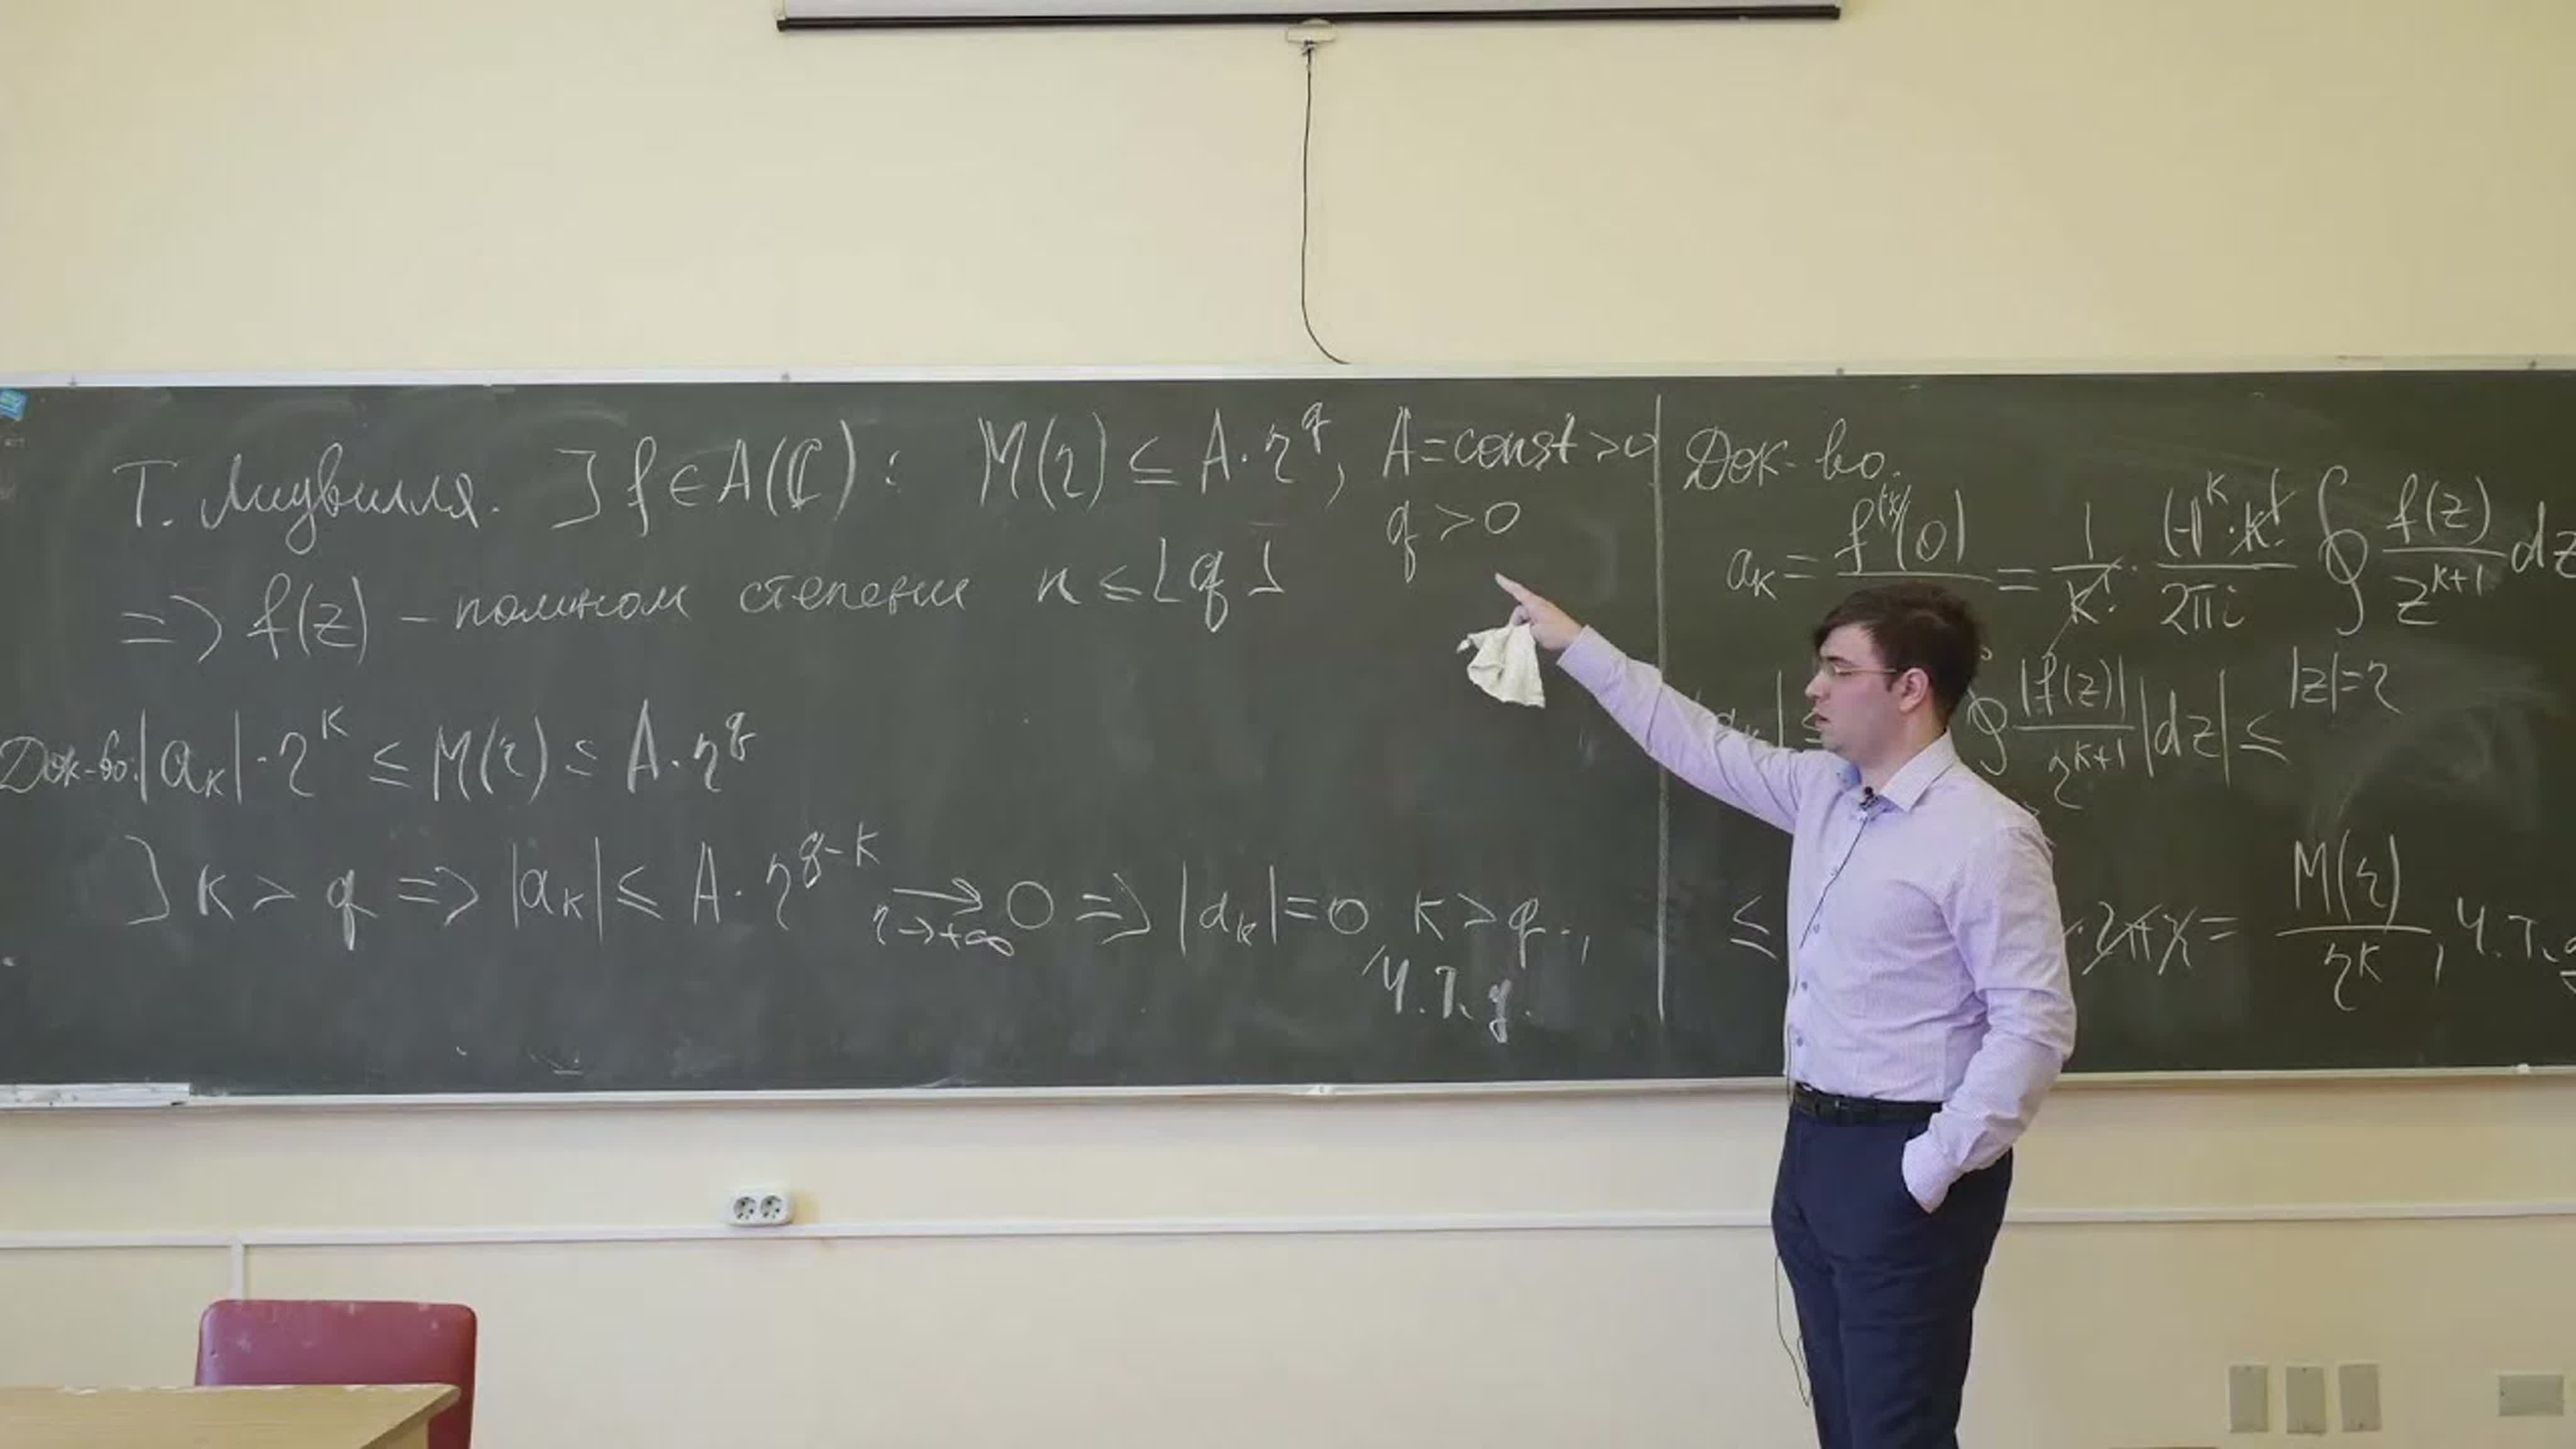 Т. Лиувилля. ] f ∈ A(ℂ) : M(r) ≤ A · r^q, A = const > 0
q > 0
=> f(z) – полином степени n ≤ ⌊q⌋
Док-во: |a_k| · r^k ≤ M(r) ≤ A · r^q
] k > q => |a_k| ≤ A · r^{q-k} → 0 => |a_k| = 0, k > q.,
r → +∞
ч.т.д.
Док-во.
a_k = f^{(k)}(0) = 1/k! · (-1)^k · k!/2πi ∮ f(z)/z^{k+1} dz
|z| = r
≤ ∮ |f(z)|/r^{k+1} |dz| ≤
≤ · 2πr = M(r)/r^k, ч.т.д